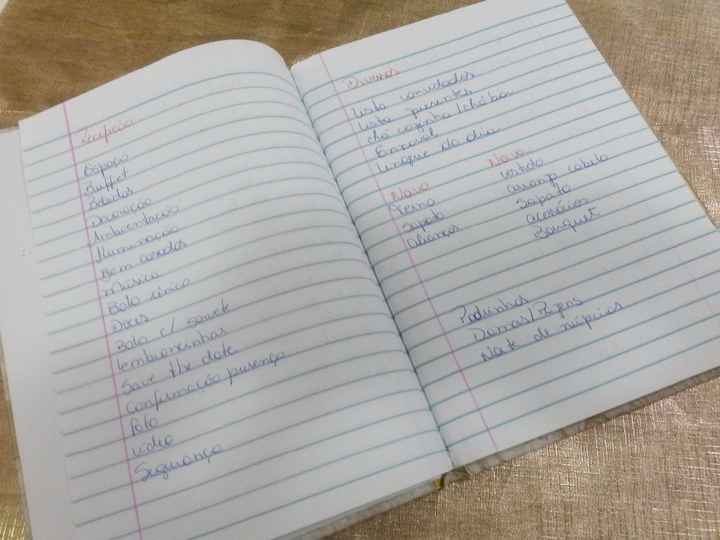 Recepção
Espaço
Buffet
Bebidas
Decoração
Ambientação
Iluminação
Bem casados
Música
Bolo cênico
Doces
Bolo c/ sorvete
lembrancinhas
Save the date
Confirmação presença
Foto
Vídeo
Segurança
Diversos
Lista convidados
Lista presentes
chá cozinha / chá bar
Enxoval
Unique do dia
Noivo
Terno
Sapato
alianças
Noiva
vestido
arranjo cabelo
Sapato
acessórios
Bouquet
Padrinhos
Damas/Pajens
Noite de núpcias